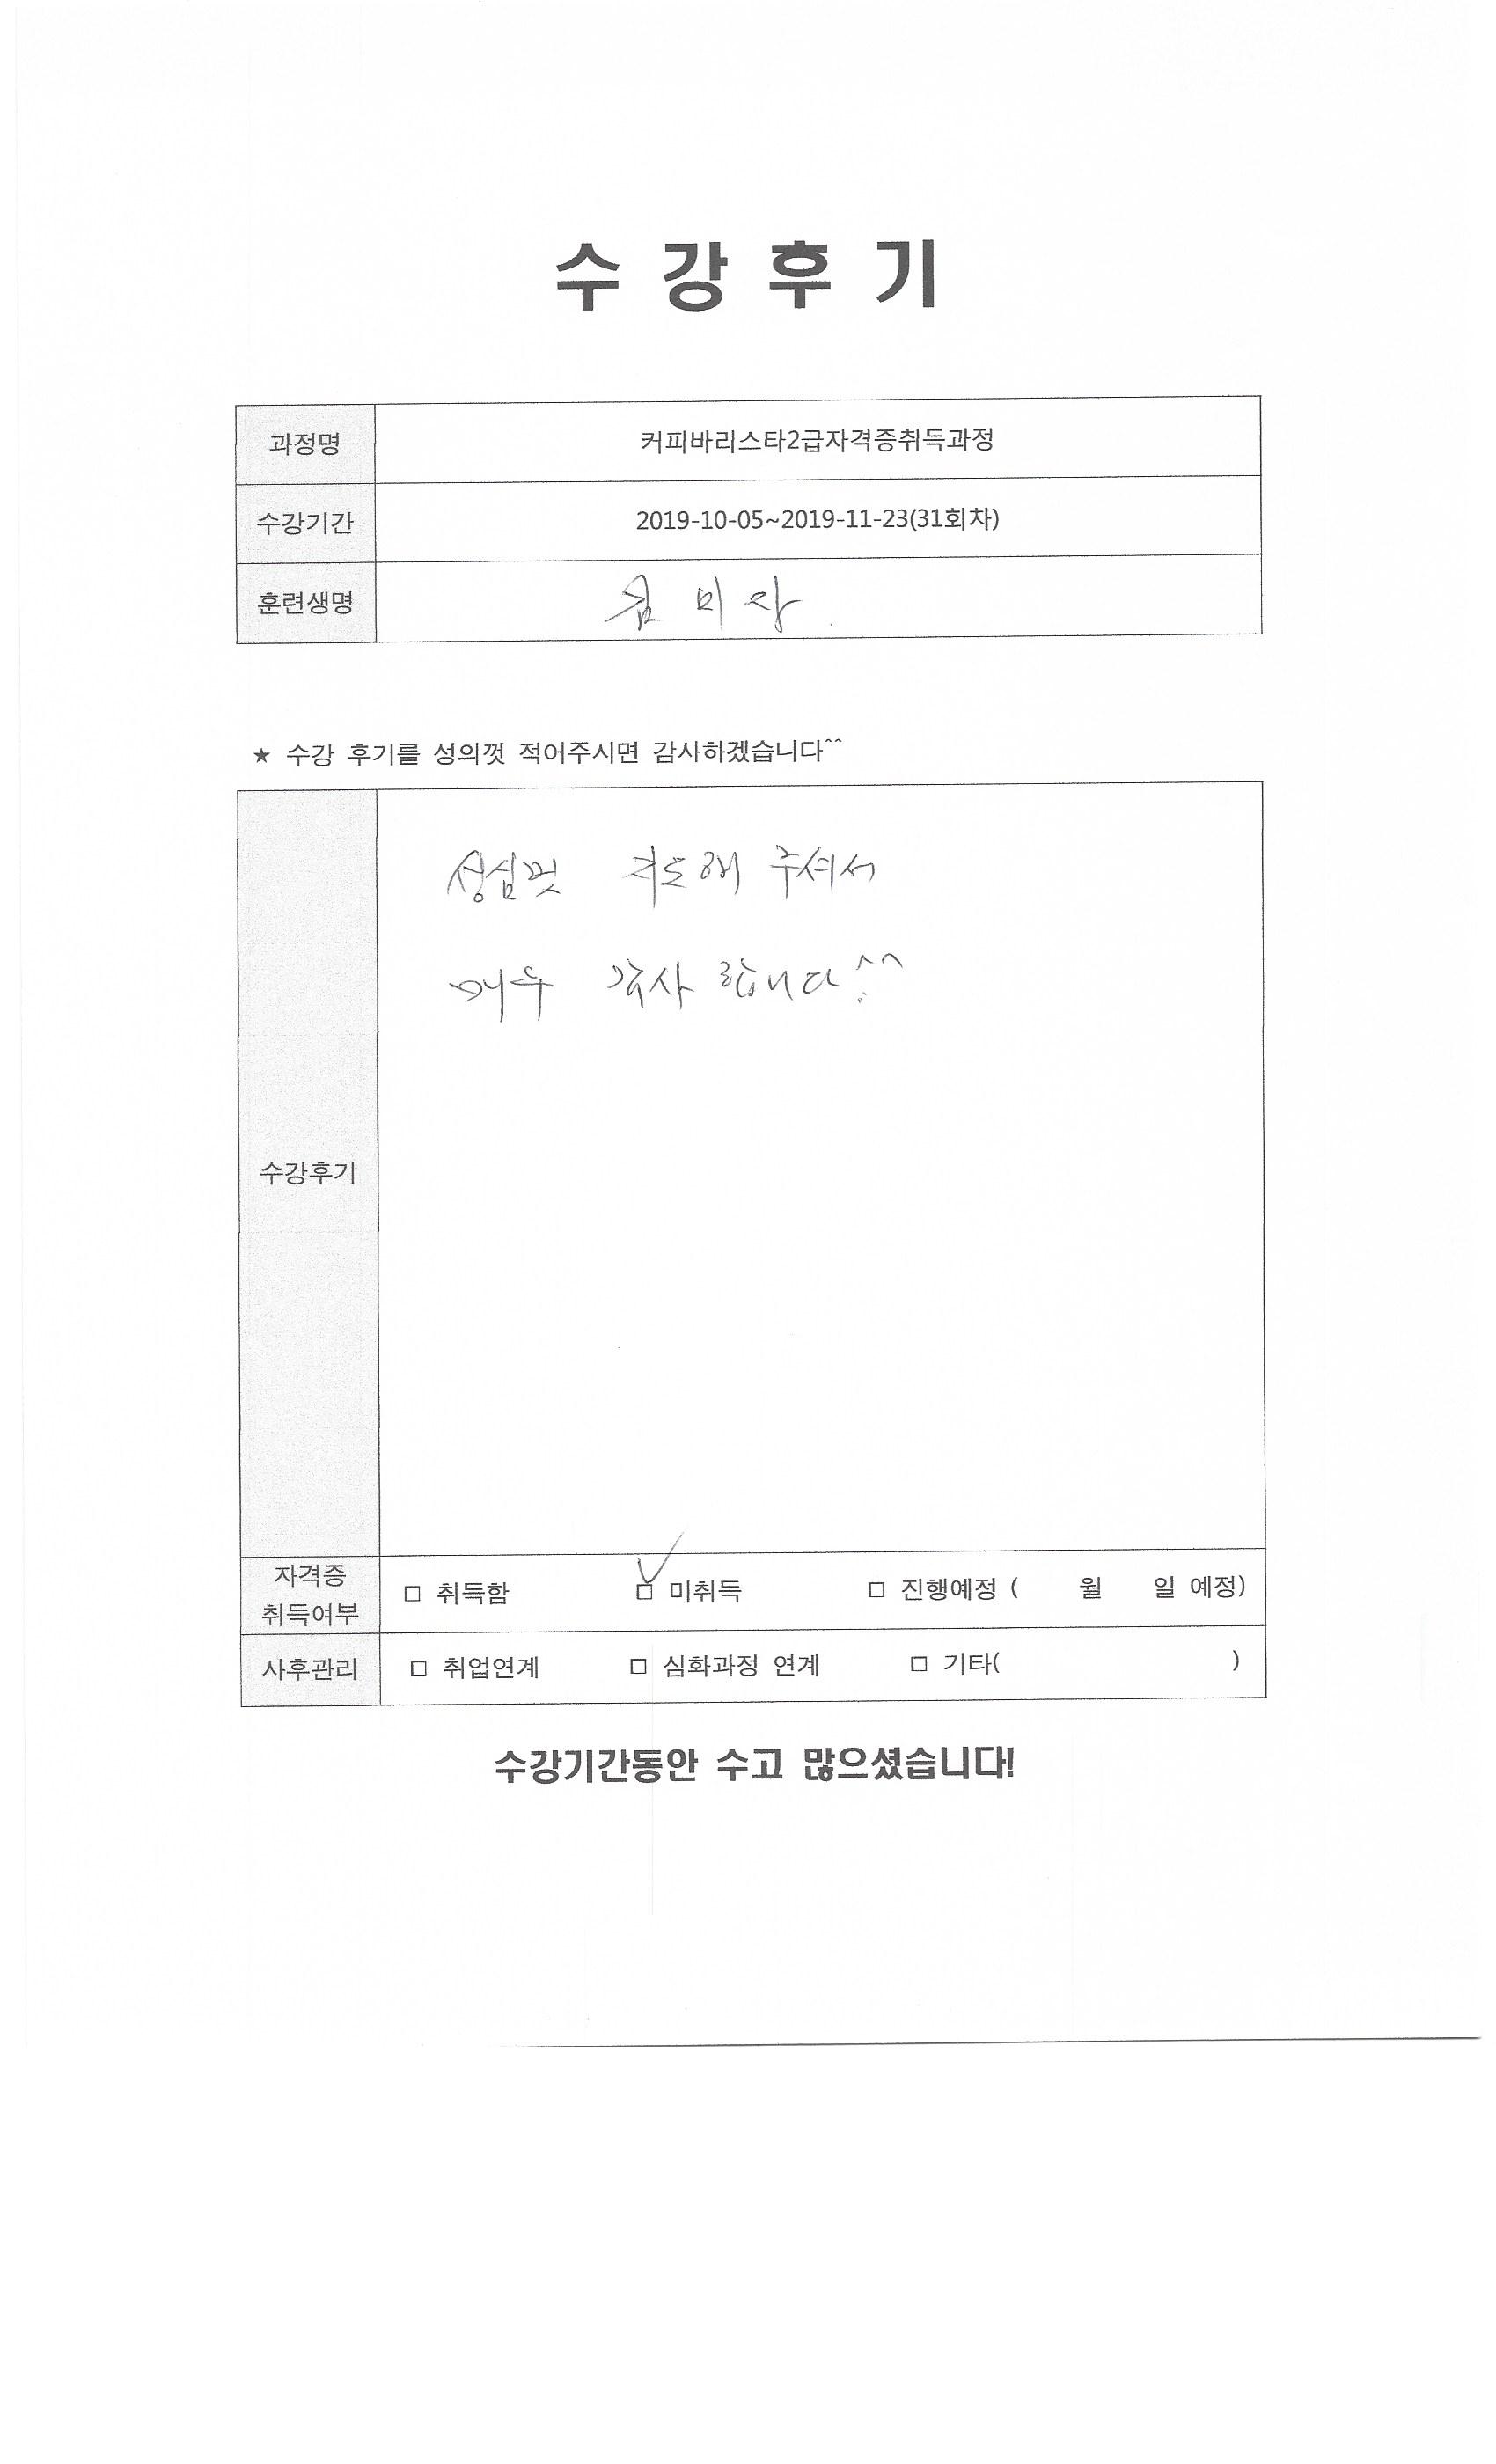 수 강 후 기
과정명 커피바리스타2급자격증취득과정
수강기간 2019-10-05~2019-11-23(31회차)
훈련생명 미
★ 수강 후기를 성의껏 적어주시면 감사하겠습니다^^
성심껏 지도해 주셔서
매우 감사합니다^^
수강후기
자격증 취득여부 □ 취득함 ☑ 미취득 □ 진행예정 ( 월 일 예정)
사후관리 □ 취업연계 □ 심화과정 연계 □ 기타( )
수강기간동안 수고 많으셨습니다!